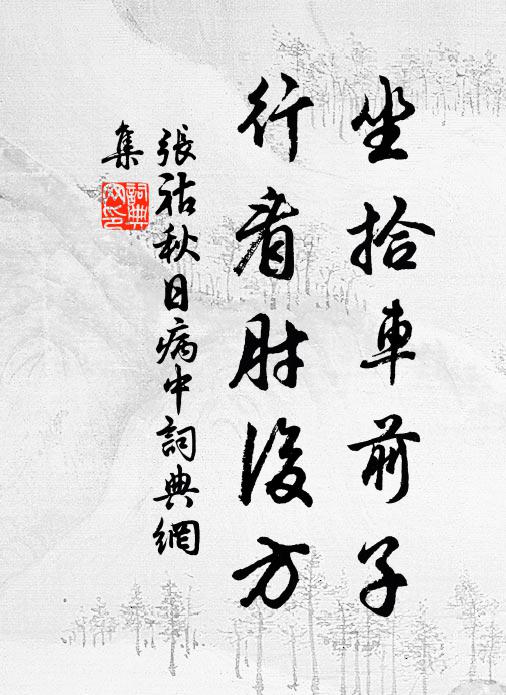 坐拾車前子
行看肘後方
張祜秋日病中詞典網
集
詞典網